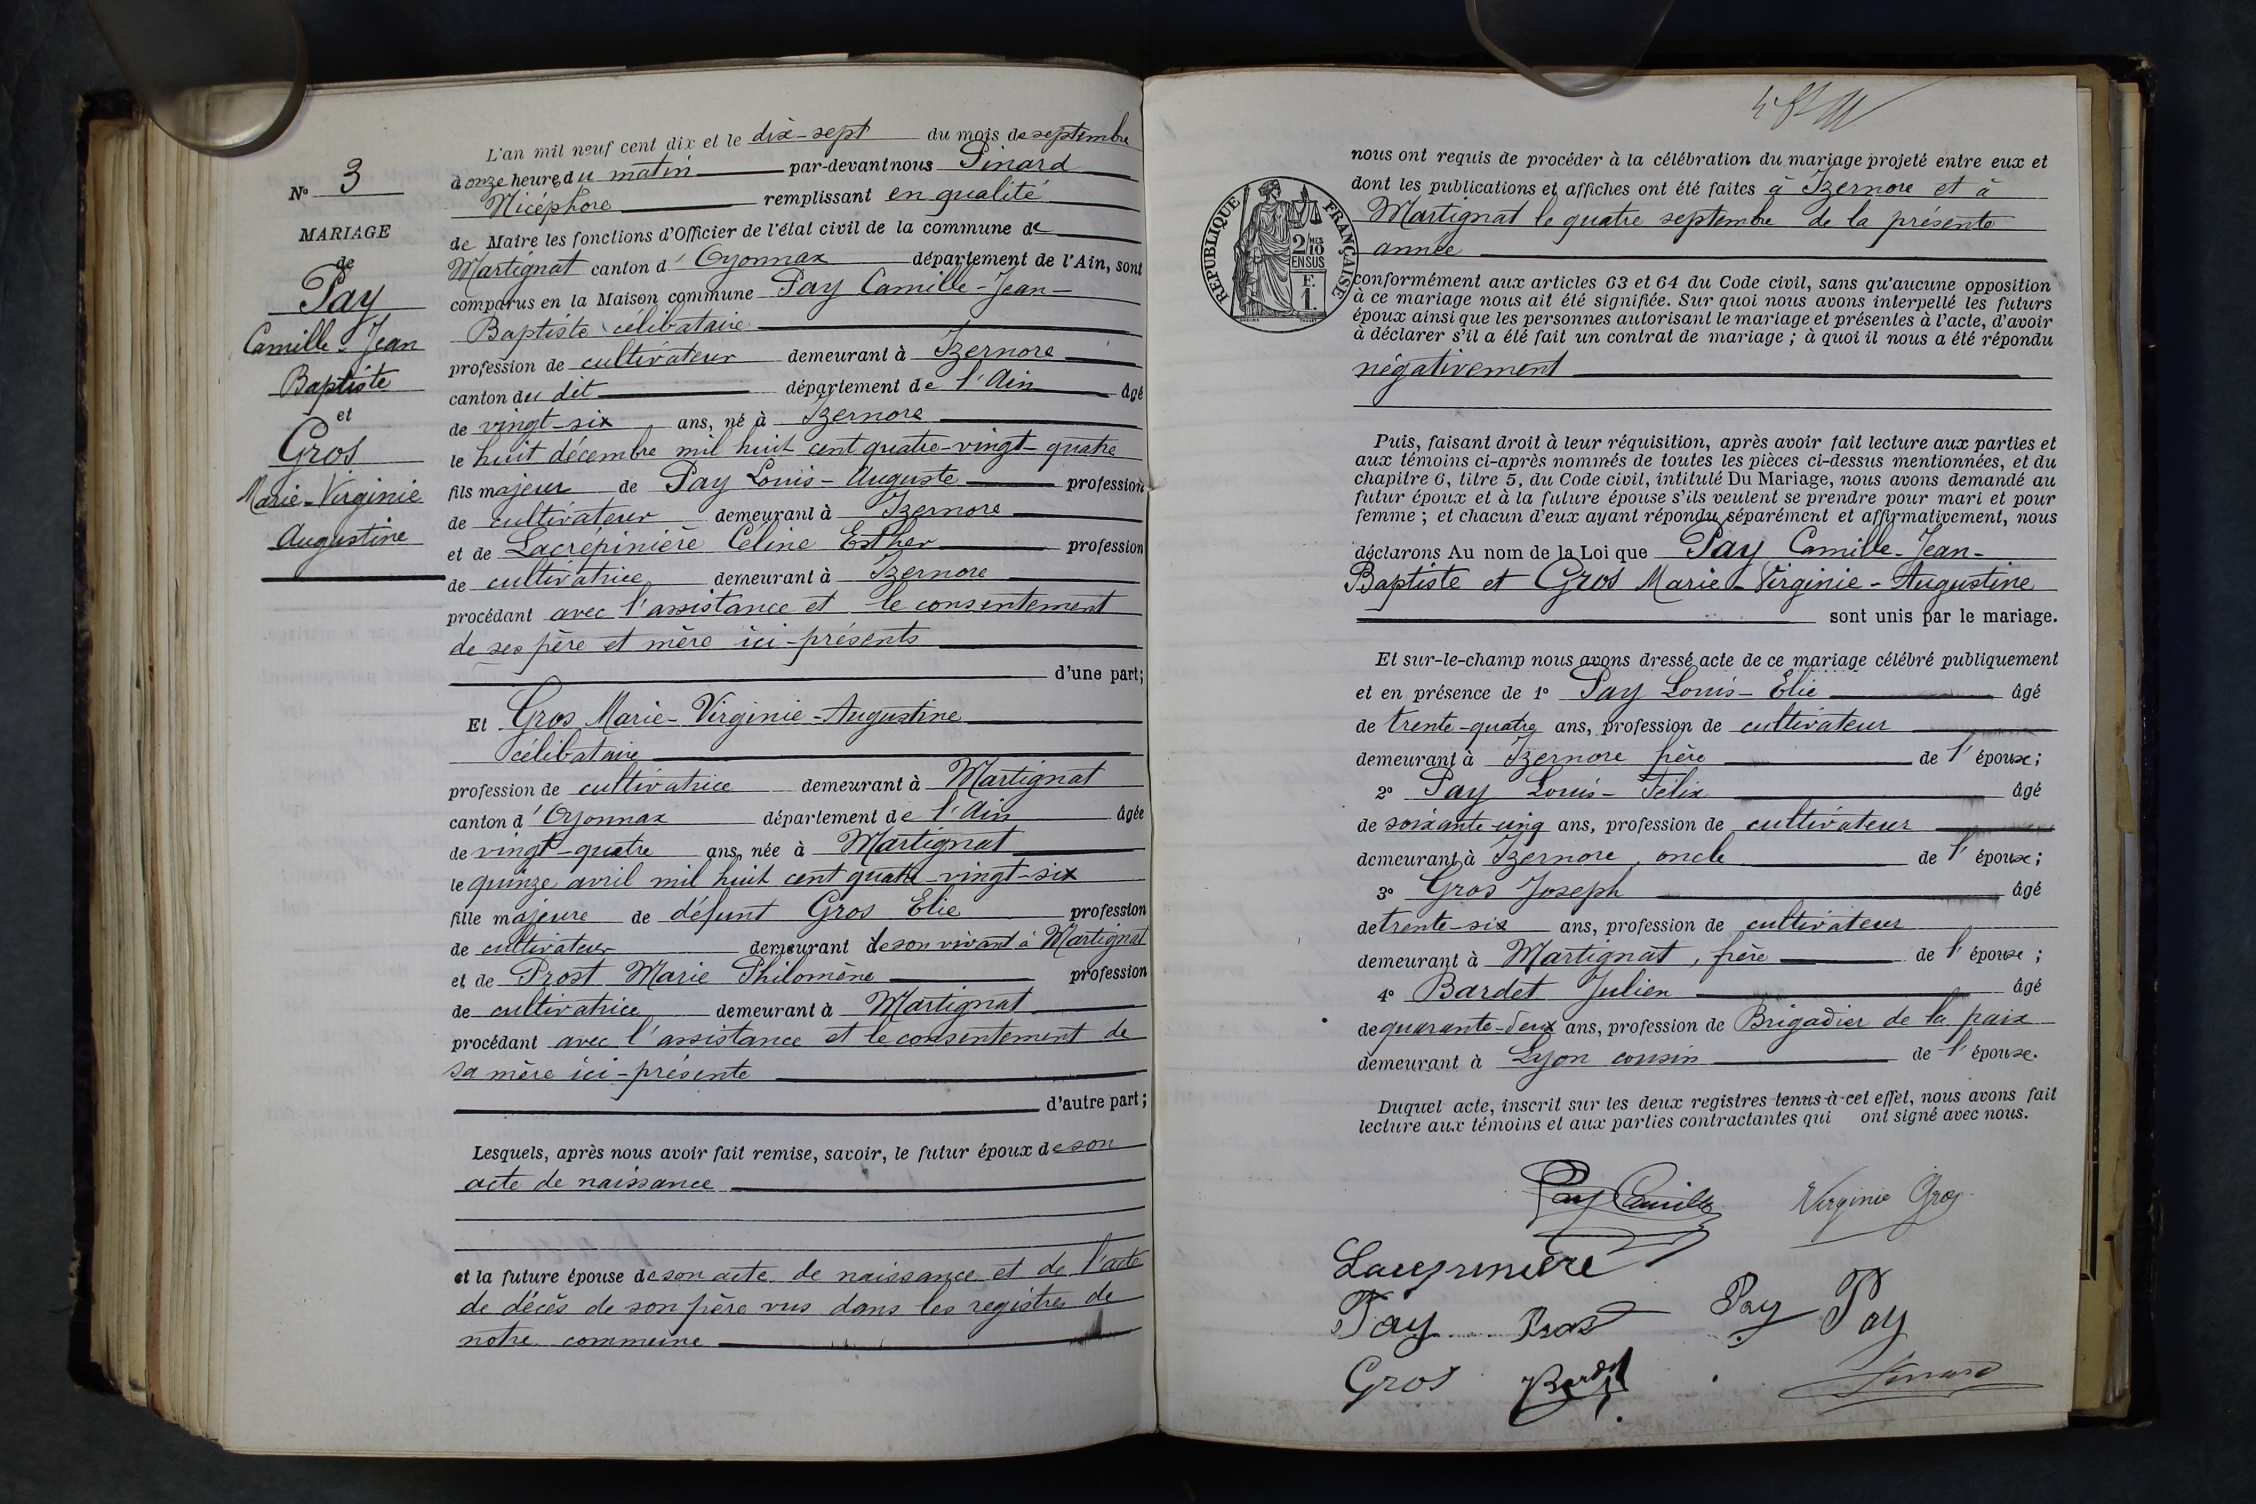 N° 3
MARIAGE
de
Pay
Camille-Jean
Baptiste
et
Gros
Marie-Virginie
Augustine
L'an mil neuf cent dix et le dix-sept du mois de septembre
à onze heures du matin par-devant nous Pinard
Nicéphore remplissant en qualité
de Maire les fonctions d'Officier de l'état civil de la commune de
Martignat canton d'Oyonnax département de l'Ain, sont
comparus en la Maison commune Pay Camille-Jean-
Baptiste célibataire
profession de cultivateur demeurant à Izernore
canton du dit département de l'Ain âgé
de vingt-six ans, né à Izernore
le huit décembre mil huit cent quatre-vingt-quatre
fils majeur de Pay Louis-Auguste profession
de cultivateur demeurant à Izernore
et de Lacrépinière Céline Esther profession
de cultivatrice demeurant à Izernore
procédant avec l'assistance et le consentement
de ses père et mère ici-présents
d'une part;
Et Gros Marie-Virginie-Augustine
célibataire
profession de cultivatrice demeurant à Martignat
canton d'Oyonnax département de l'Ain âgée
de vingt-quatre ans, née à Martignat
le quinze avril mil huit cent quatre-vingt-six
fille majeure de défunt Gros Elie profession
de cultivateur demeurant de son vivant à Martignat
et de Prost Marie Philomène profession
de cultivatrice demeurant à Martignat
procédant avec l'assistance et le consentement de
sa mère ici-présente
d'autre part;
Lesquels, après nous avoir fait remise, savoir, le futur époux de son
acte de naissance
et la future épouse de son acte de naissance et de l'acte
de décès de son père vus dans les registres de
notre commune
nous ont requis de procéder à la célébration du mariage projeté entre eux et
dont les publications et affiches ont été faites à Izernore et à
Martignat le quatre septembre de la présente
année
RÉPUBLIQUE FRANÇAISE
2/10 MES
EN SUS
F.
1.
conformément aux articles 63 et 64 du Code civil, sans qu'aucune opposition
à ce mariage nous ait été signifiée. Sur quoi nous avons interpellé les futurs
époux ainsi que les personnes autorisant le mariage et présentes à l'acte, d'avoir
à déclarer s'il a été fait un contrat de mariage ; à quoi il nous a été répondu
négativement
Puis, faisant droit à leur réquisition, après avoir fait lecture aux parties et
aux témoins ci-après nommés de toutes les pièces ci-dessus mentionnées, et du
chapitre 6, titre 5, du Code civil, intitulé Du Mariage, nous avons demandé au
futur époux et à la future épouse s'ils veulent se prendre pour mari et pour
femme ; et chacun d'eux ayant répondu séparément et affirmativement, nous
déclarons Au nom de la Loi que Pay Camille-Jean-
Baptiste et Gros Marie-Virginie-Augustine
sont unis par le mariage.
Et sur-le-champ nous avons dressé acte de ce mariage célébré publiquement
et en présence de 1° Pay Louis-Elie âgé
de trente-quatre ans, profession de cultivateur
demeurant à Izernore frère de l'épouse;
2° Pay Louis-Félix âgé
de soixante-cinq ans, profession de cultivateur
demeurant à Izernore, oncle de l'épouse;
3° Gros Joseph âgé
de trente-six ans, profession de cultivateur
demeurant à Martignat, frère de l'épouse ;
4° Bardet Julien âgé
de quarante-deux ans, profession de Brigadier de la paix
demeurant à Lyon cousin de l'épouse.
Duquel acte, inscrit sur les deux registres tenus à cet effet, nous avons fait
lecture aux témoins et aux parties contractantes qui ont signé avec nous.
Pay Camille Virginie Gros
Lacrépinière
Pay Prost Pay Pay
Gros Bardet Pinard